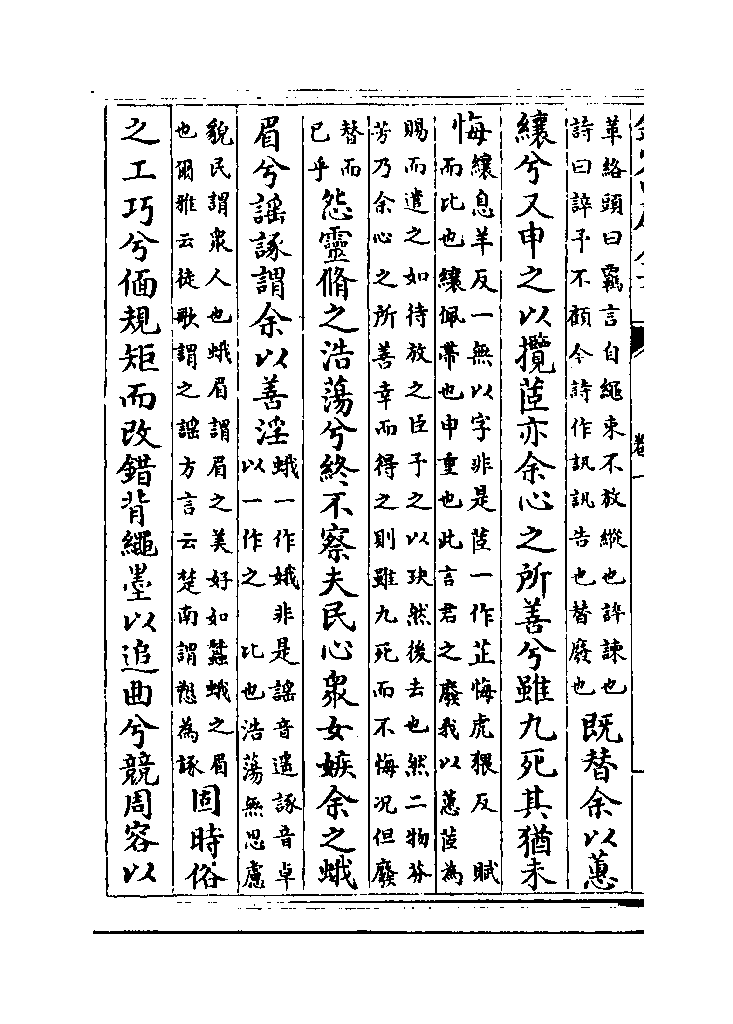 革絡頭曰羈言自繩束不放縱也誶諫也
詩曰誶予不顧今詩作訊訊告也替廢也
既替余以蕙
纕兮又申之以攬茞亦余心之所善兮雖九死其猶未
悔
纕息羊反一無以字非是茞一作芷悔虎猥反 賦
而比也纕佩帶也申重也此言君之廢我以蕙茞為
賜而遣之如待放之臣予之以玦然後去也然二物芬
芳乃余心之所善幸而得之則雖九死而不悔况但廢
替而
已乎
怨靈脩之浩蕩兮終不察夫民心衆女嫉余之蛾
眉兮謡諑謂余以善淫
蛾一作娥非是謡音遥諑音卓
以一作之 比也浩蕩無思慮
貌民謂衆人也蛾眉謂眉之美好如蠶蛾之眉
也爾雅云徒歌謂之謡方言云楚南謂愬為諑
固時俗
之工巧兮偭規矩而改錯背繩墨以追曲兮競周容以